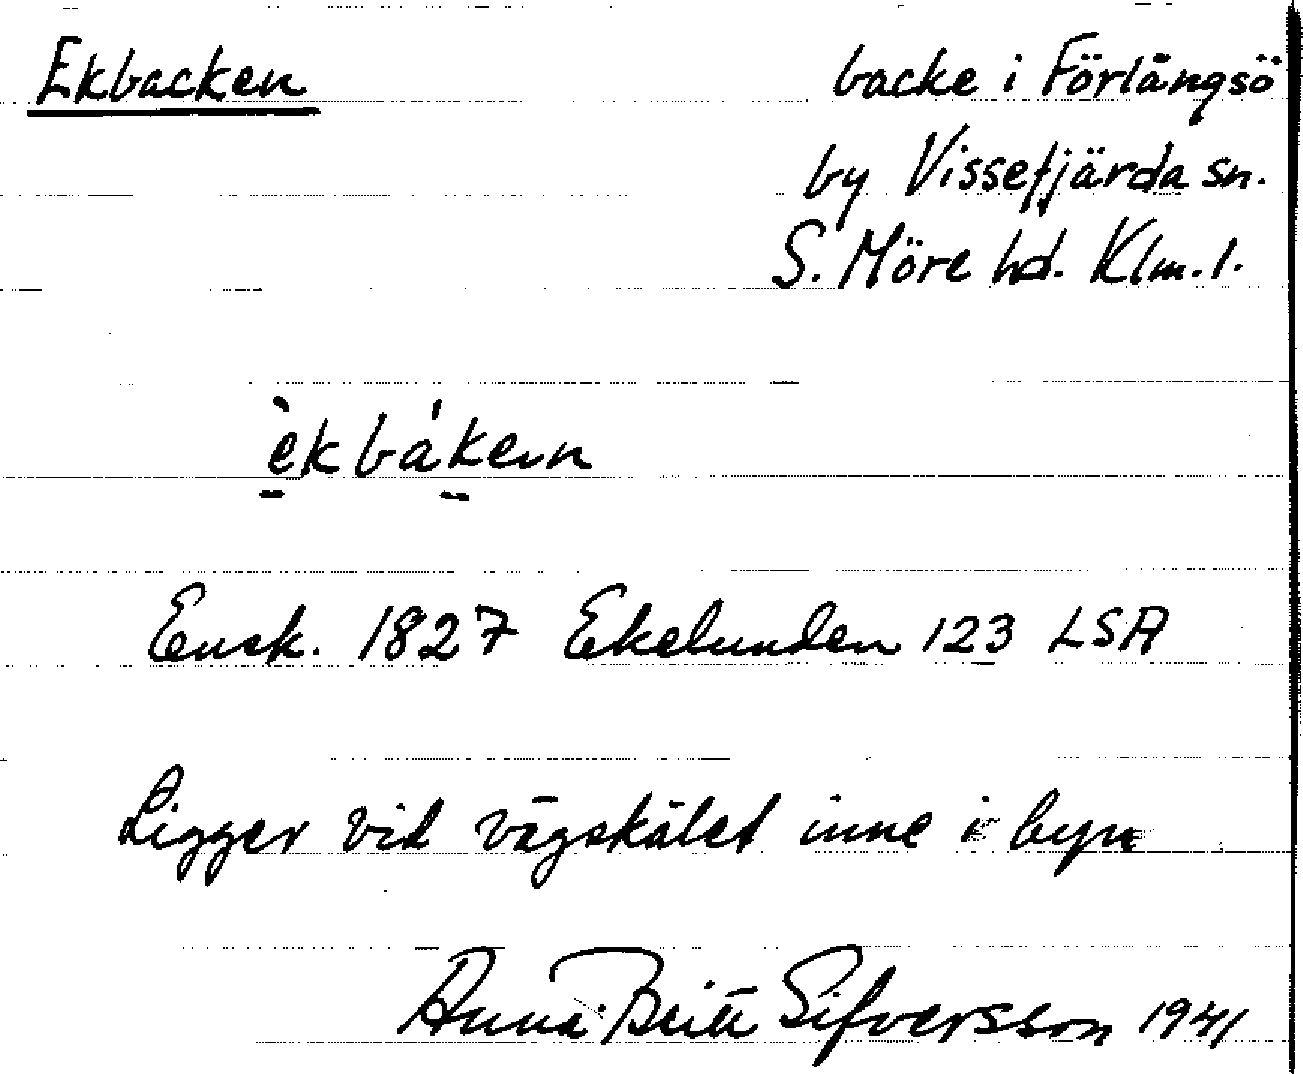 Ekbacken
backe i Förlångsö
by Vissefjärda sn.
S. Möre hd. Klm. l.
èkbákein
Ensk. 1827 Ekelunden 123 LSA
Ligger vid vägskälet inne i byn
Anna-Britt Sifversson 1941